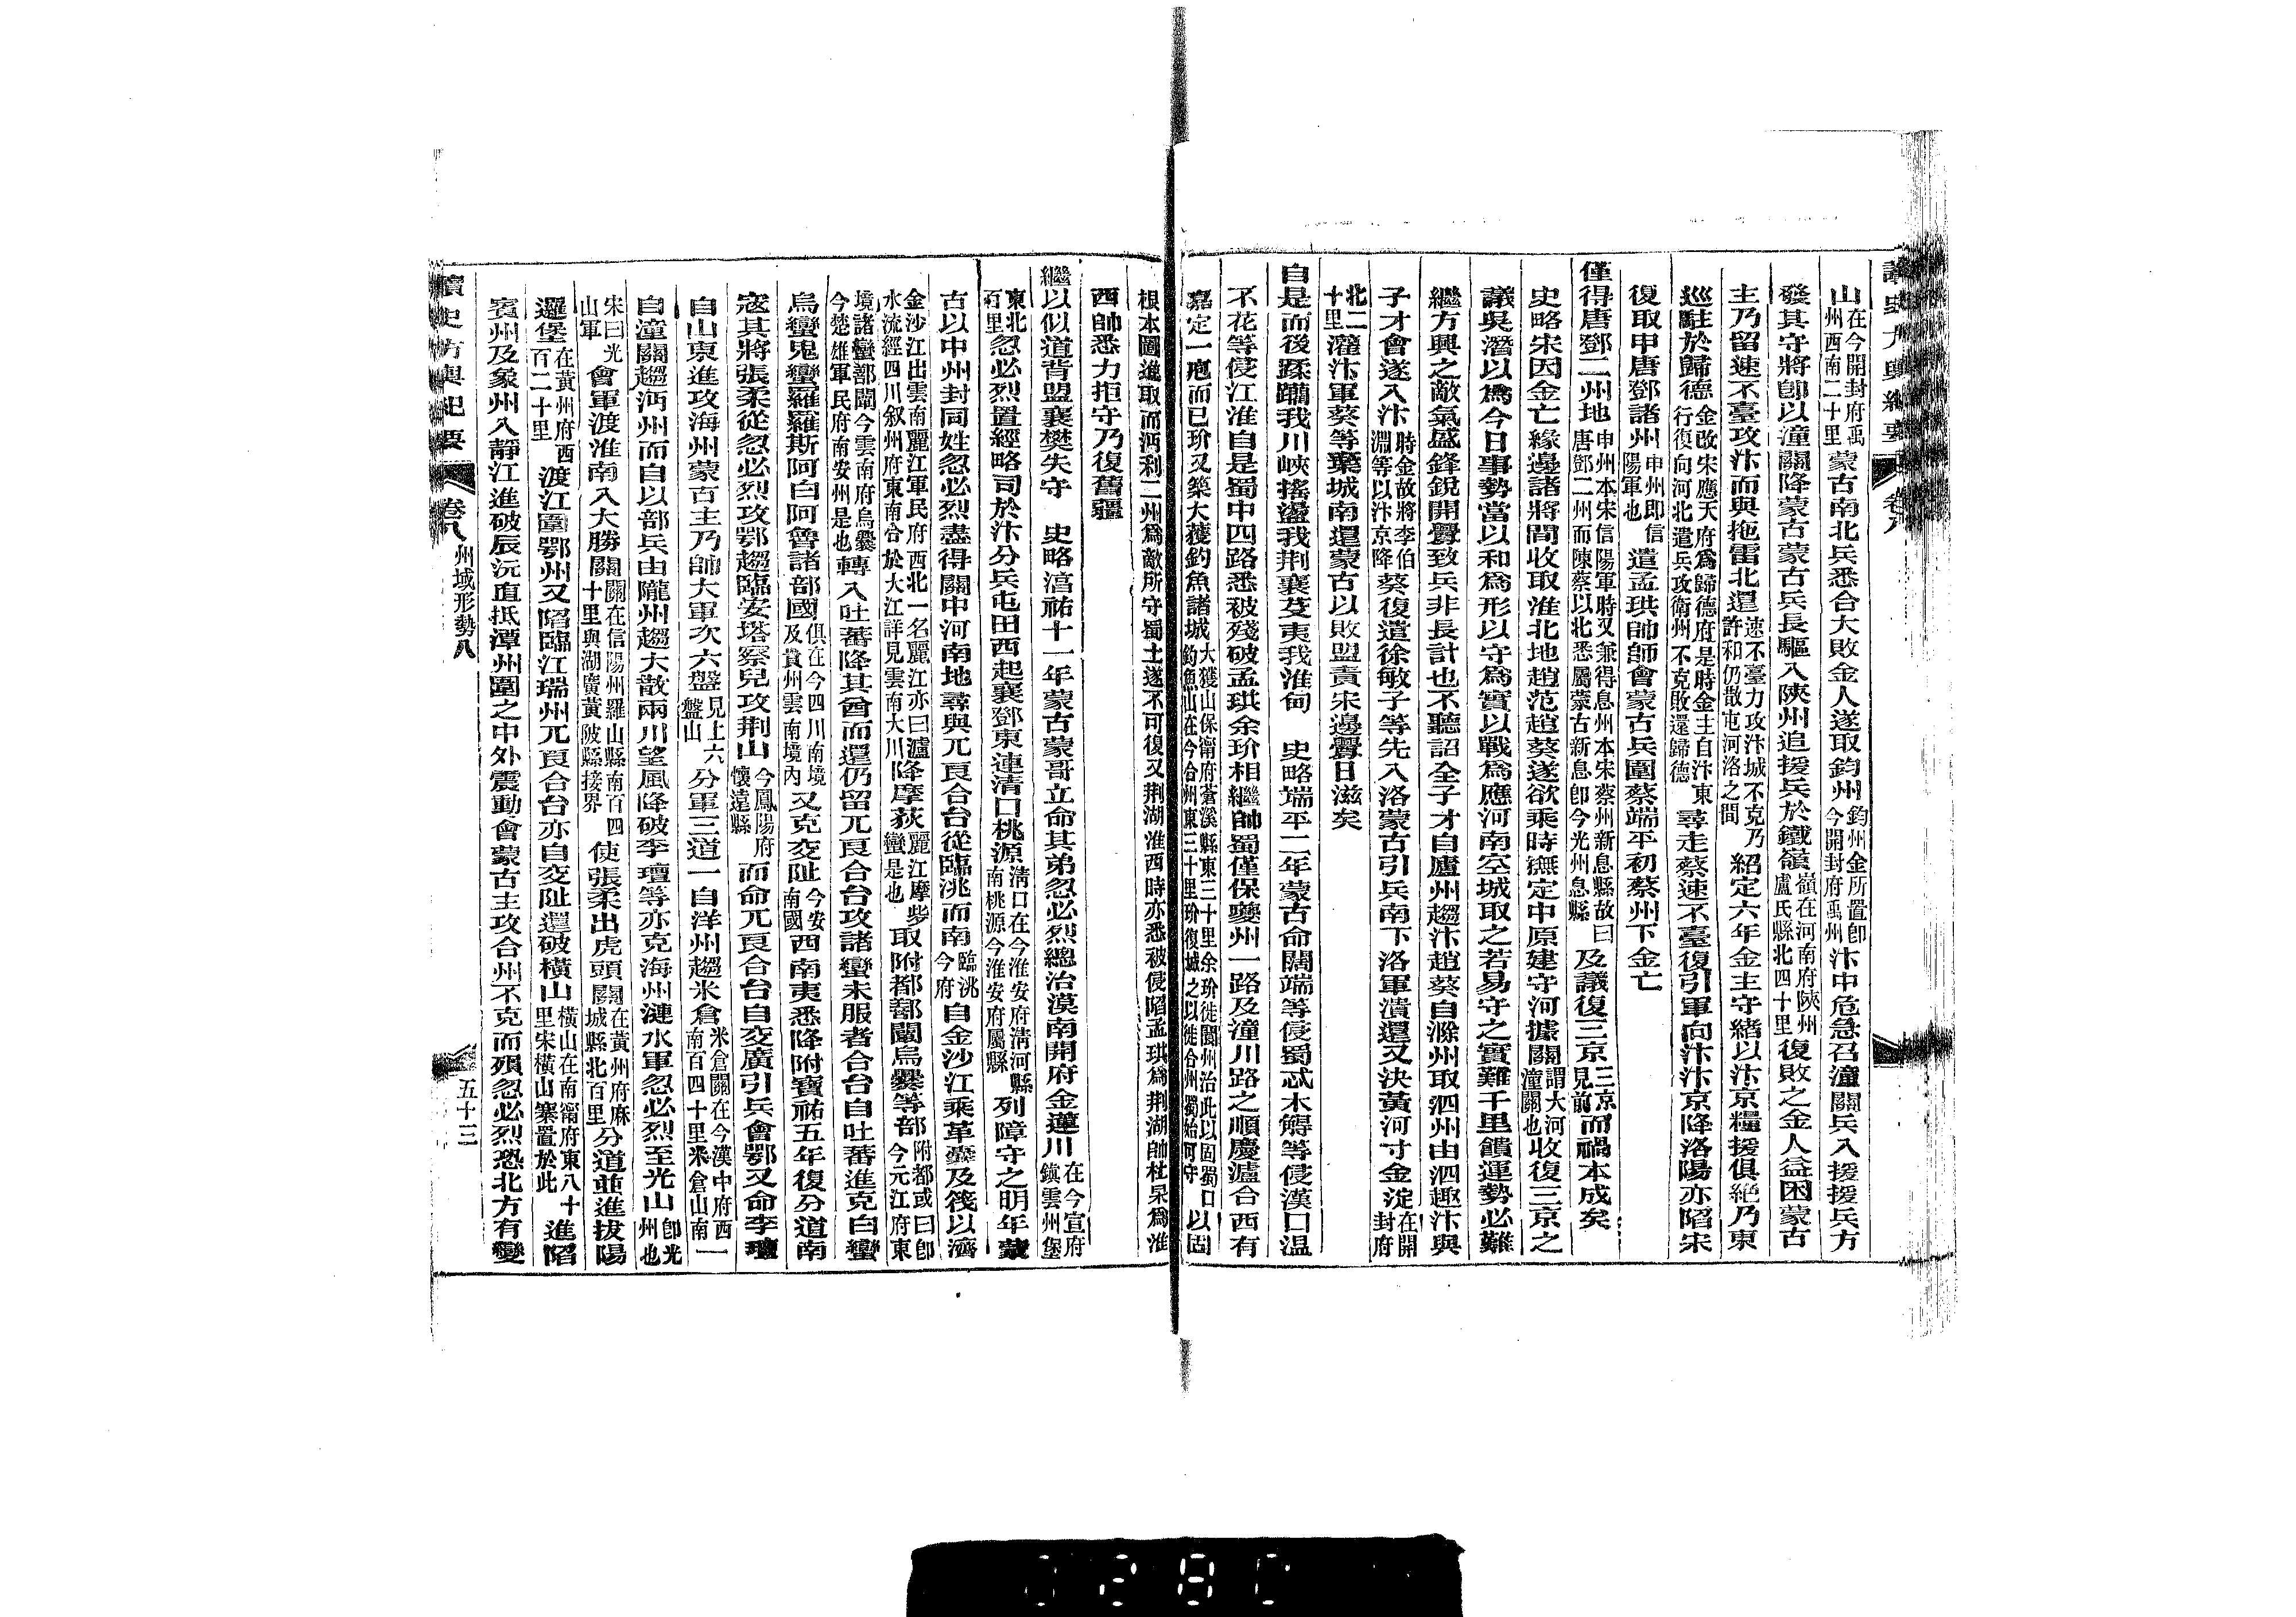 讀史方輿紀要 卷八
山在今開封府禹州西南二十里蒙古南北兵悉合大敗金人遂取鈞州鈞州金所置卽今開封府禹州汴中危急召潼關兵入援援兵方
發其守將卽以潼關降蒙古蒙古兵長驅入陝州追援兵於鐵嶺嶺在河南府陝州盧氏縣北四十里復敗之金人益困蒙古
主乃留速不臺攻汴而與拖雷北還速不臺力攻汴城不克乃許和仍散屯河洛之間紹定六年金主守緒以汴京糧援俱絶乃東
巡駐於歸德金改宋應天府爲歸德府是時金主自汴東行復向河北遣兵攻衛州不克敗還歸德尋走蔡速不臺復引軍向汴汴京降洛陽亦陷宋
復取申唐鄧諸州申州卽信陽軍也遣孟珙帥師會蒙古兵圍蔡端平初蔡州下金亡
僅得唐鄧二州地申州本宋信陽軍時又兼得息州本宋蔡州新息縣故曰唐鄧二州而陳蔡以北悉屬蒙古新息卽今光州息縣及議復三京三京見前而禍本成矣
史略宋因金亡緣邊諸將間收取淮北地趙范趙葵遂欲乘時撫定中原建守河據關謂大河潼關也收復三京之
議吳潛以爲今日事勢當以和爲形以守爲實以戰爲應河南空城取之若易守之實難千里饋運勢必難
繼方興之敵氣盛鋒銳開釁致兵非長計也不聽詔全子才自廬州趨汴趙葵自滁州取泗州由泗趣汴與
子才會遂入汴時金故將李伯淵等以汴京降葵復遣徐敏子等先入洛蒙古引兵南下洛軍潰還又決黃河寸金淀在開封府
北二十里灌汴軍葵等棄城南還蒙古以敗盟責宋邊釁日滋矣
自是而後蹂躪我川峽搖盪我荆襄芟夷我淮甸　史略端平二年蒙古命闊端等侵蜀忒木䚟等侵漢口溫
不花等侵江淮自是蜀中四路悉被殘破孟珙余玠相繼帥蜀僅保夔州一路及潼川路之順慶瀘合西有
嘉定一府而已玠又築大獲釣魚諸城大獲山保甯府蒼溪縣東三十里余玠徙閬州治此以固蜀口釣魚山在今合州東三十里玠復城之以徙合州蜀始可守以固
根本圖進取而沔利二州爲敵所守蜀土遂不可復又荆湖淮西時亦悉被侵陷孟珙爲荆湖帥杜杲爲淮
西帥悉力拒守乃復舊疆
繼以似道背盟襄樊失守　史略淳祐十一年蒙古蒙哥立命其弟忽必烈總治漠南開府金蓮川在今宣府鎮雲州堡
東北百里忽必烈置經略司於汴分兵屯田西起襄鄧東連清口桃源清口在今淮安府清河縣南桃源今淮安府屬縣列障守之明年蒙
古以中州封同姓忽必烈盡得關中河南地尋與兀良合台從臨洮而南臨洮今府自金沙江乘革囊及筏以濟
金沙江出雲南麗江軍民府西北一名麗江亦曰瀘水流經四川叙州府東南合於大江詳見雲南大川降摩荻麗江摩㱔蠻是也取附都鄯闡烏爨等部附都或曰卽今元江府東
境諸蠻部闡今雲南府烏爨今楚雄軍民府南安州是也轉入吐蕃降其酋而還仍留兀良合台攻諸蠻未服者合台自吐蕃進克白蠻
烏蠻鬼蠻羅羅斯阿白阿魯諸部國俱在今四川南境及貴州雲南境內又克交阯今安南國西南夷悉降附寶祐五年復分道南
寇其將張柔從忽必烈攻鄂趨臨安塔察兒攻荆山今鳳陽府懷遠縣而命兀良合台自交廣引兵會鄂又命李璮
自山東進攻海州蒙古主乃帥大軍次六盤見上六盤山分軍三道一自洋州趨米倉米倉關在今漢中府西南百四十里米倉山南一
自潼關趨沔州而自以部兵由隴州趨大散兩川望風降破李璮等亦克海州漣水軍忽必烈至光山卽光州也
宋曰光山軍會軍渡淮南入大勝關關在信陽州羅山縣南百四十里與湖廣黃陂縣接界使張柔出虎頭關關在黃州府麻城縣北百里分道並進拔陽
邏堡在黃州府西百二十里渡江圍鄂州又陷臨江瑞州兀良合台亦自交阯還破橫山橫山在南甯府東八十里宋橫山寨置於此進陷
賓州及象州入靜江進破辰沅直抵潭州圍之中外震動會蒙古主攻合州不克而殞忽必烈恐北方有變
讀史方輿紀要 卷八 州域形勢八 五十三